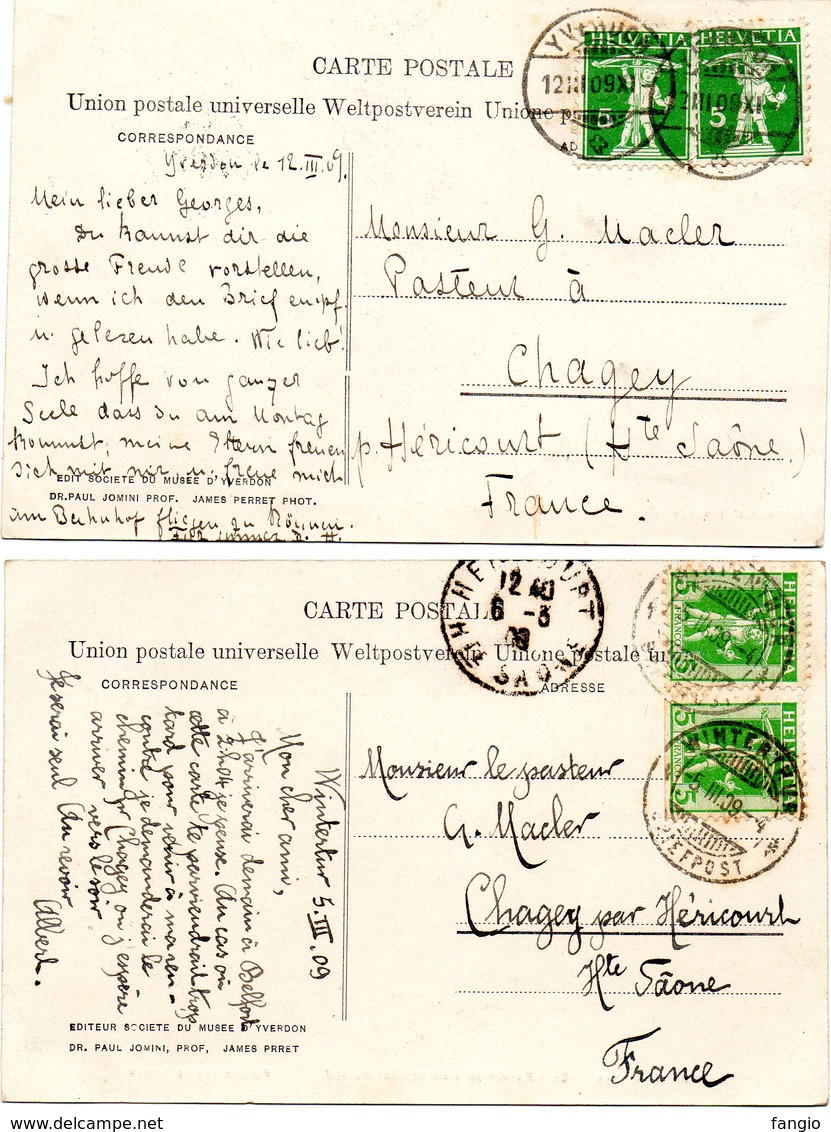 CARTE POSTALE
Union postale universelle Weltpostverein Unione p
CORRESPONDANCE
AD
HELVETIA
5
HELVETIA
5
12 III 09 XI
12 III 09 XI
Yverdon le 12.III.09.
Mein lieber Georges,
Du kannst dir die
grosse Freude vorstellen,
wenn ich den Brief empf.
u. gelesen habe. Wie lieb!
Ich hoffe von ganzer
Seele dass du am Montag
kommst, meine Eltern freuen
sich mit mir, u. freue mich
am Bahnhof fliegen zu können.
Für immer d. H.
EDIT SOCIETE DU MUSEE D'YVERDON
DR. PAUL JOMINI PROF. JAMES PERRET PHOT.
Monsieur G. Macler
Pasteur à
Chagey
p. Héricourt, (Hte Saône.)
France.
CARTE POSTALE
Union postale universelle Weltpostverein Unione postale un
CORRESPONDANCE
ADRESSE
HERICOURT
12 40
6 - 3
09
HTE SAONE
HELVETIA
5
FRANCO
HELVETIA
5
FRANCO
WINTERTHUR
5.III.09.-4
BRIEFPOST
Wintertur 5.III.09
Mon cher ami,
J'arriverai demain à Belfort
à 2h04 je pense. Au cas où
cette carte te parviendrait trop
tard pour venir à ma ren-
contre je demanderai le
chemin pr Chagey où j'espère
arriver vers le soir.
Je serai seul Au revoir
Albert.
EDITEUR SOCIETE DU MUSEE D'YVERDON
DR. PAUL JOMINI, PROF, JAMES PRRET
Monsieur le pasteur
G. Macler
Chagey par Héricourt
Hte Saône
France
fangio
© DELCAMPE.NET